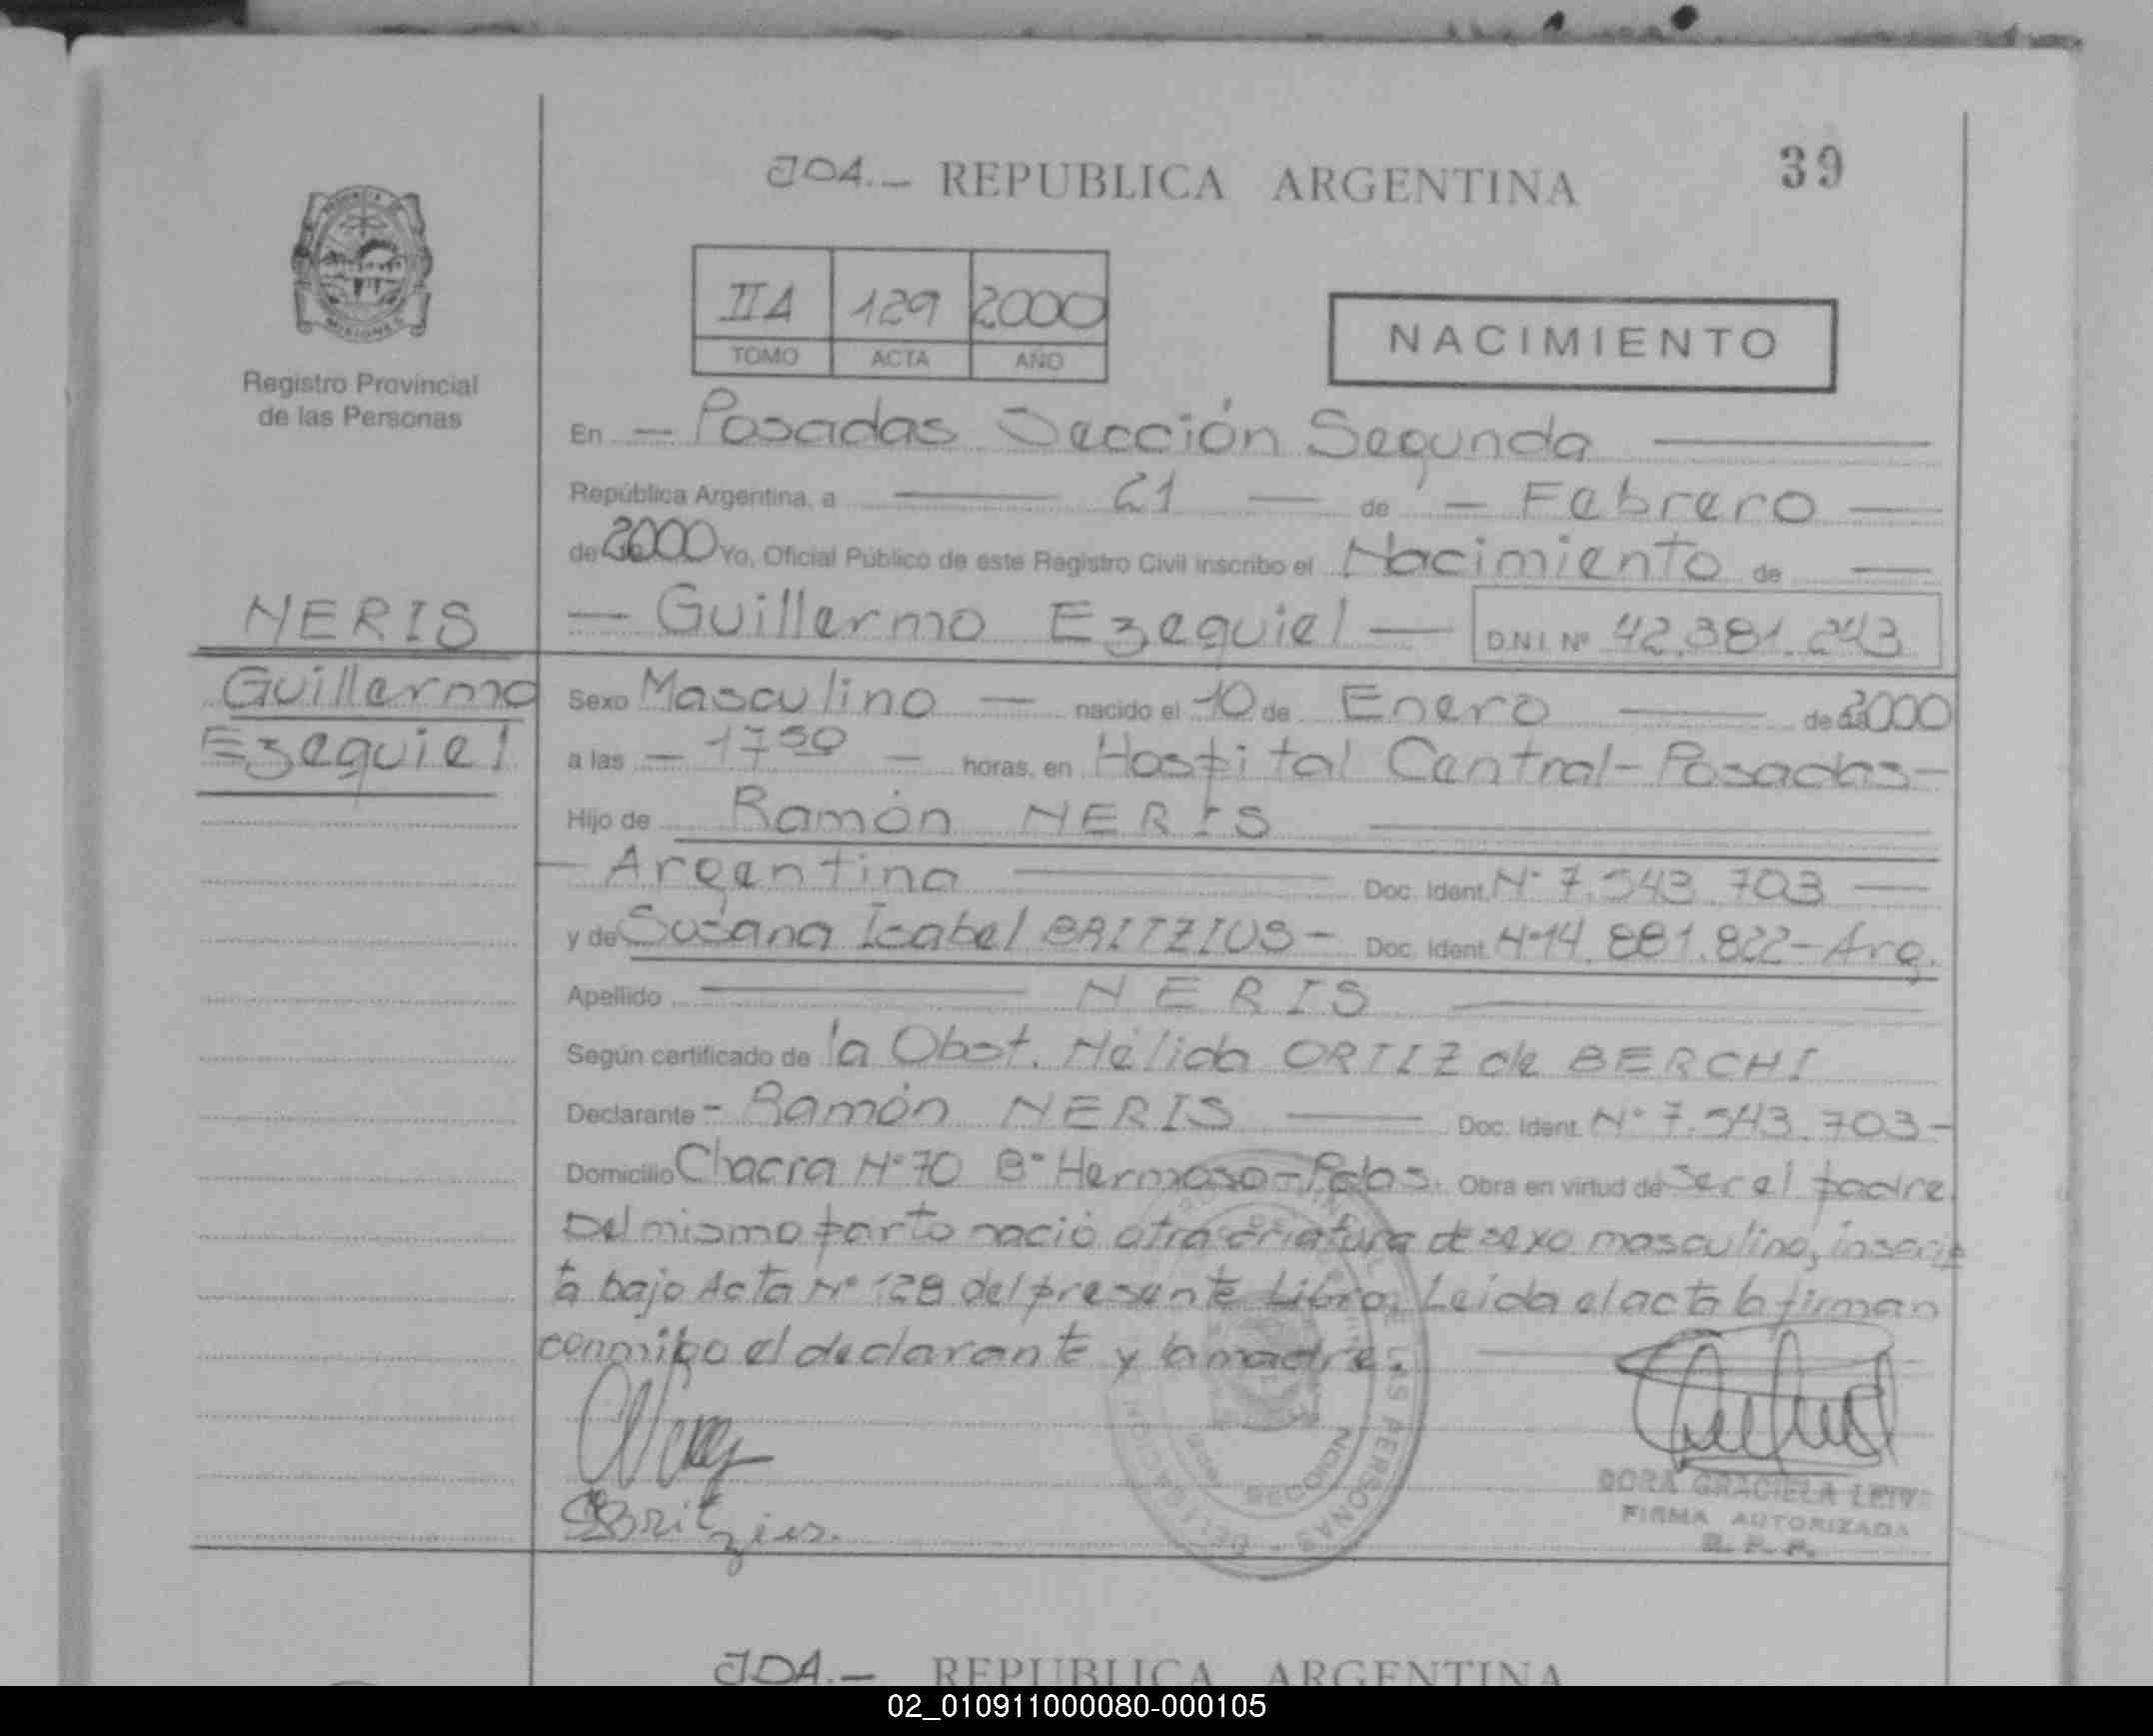 JDA.- REPUBLICA ARGENTINA 39
IIA 129 2000
TOMO ACTA AÑO
NACIMIENTO
Registro Provincial
de las Personas
En - Posadas Sección Segunda
República Argentina, a 21 de - Febrero
de 2000 Yo, Oficial Público de este Registro Civil inscribo el Nacimiento de
NERIS
- Guillermo Ezequiel - D.N.I. Nº 42.381.243
Guillermo
Ezequiel
Sexo Masculino - nacido el 10 de Enero de 2000
a las - horas, en Hospital Central - Posadas-
Hijo de Ramón NERIS
- Argentina Doc. Ident. Nº 7.543.703
y de Susana Isabel BRITZIUS - Doc. Ident. Nº 14.881.822 - Arg.
Apellido NERIS
Según certificado de la Obst. Nélida ORTIZ de BERCHI
Declarante - Ramón NERIS Doc. Ident. Nº 7.543.703-
Domicilio Chacra Nº 70 Bº Hermoso - Pdas. Obra en virtud de ser el padre
Del mismo parto nació otra criatura de sexo masculino, inscrip
ta bajo Acta Nº 128 del presente Libro. Leida el acta la firman
conmigo el declarante y la madre.
SBritzius.
DORA GRACIELA LEIV
FIRMA AUTORIZADA
R. P. P.
JDA.- REPUBLICA ARGENTINA
02_010911000080-000105